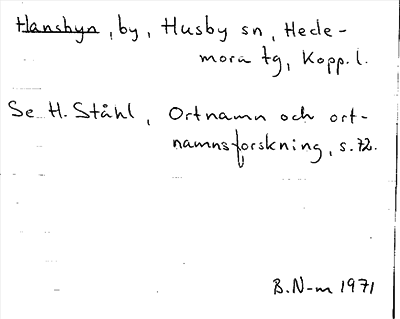 Hansbyn, by, Husby sn, Hede-
mora tg, Kopp. l.
Se H. Ståhl, Ortnamn och ort-
namnsforskning, s. 72.
B. N-m 1971